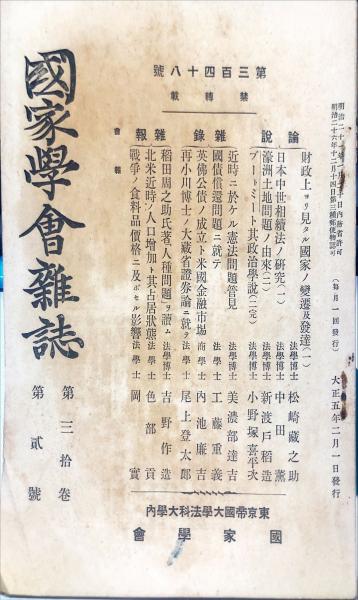 明治二十年三月三十日內務省許可
明治二十六年十二月十四日第三種郵便物認可
(每月一回發行)
大正五年二月一日發行
第三百四十八號
禁轉載
論說
財政上ヨリ見タル國家ノ變遷及發達(一) 法學博士 松崎藏之助
日本中世相續法ノ硏究(一) 法學博士 中田薰
濠洲土地問題ノ由來(二) 法學博士 新渡戶稻造
ブートミート其政治學說(二完) 法學博士 小野塚喜平次
雜錄
近時ニ於ケル憲法問題管見 法學博士 美濃部達吉
國債償還問題ニ就テ 法學士 工藤重義
英佛公債ノ成立ト米國金融市場 商學士 內池廉吉
再小川博士ノ大藏省證券論ニ就テ 法學士 尾上登太郎
雜報
稻田周之助氏著「人種問題」ヲ讀ム 法學博士 吉野作造
北米近時ノ人口增加ト其占居狀態 法學士 色部貢
戰爭ノ食料品價格ニ及ボセル影響 法學士 岡實
會報
東京帝國大學法科大學內
國家學會
國家學會雜誌
第三拾卷
第貳號